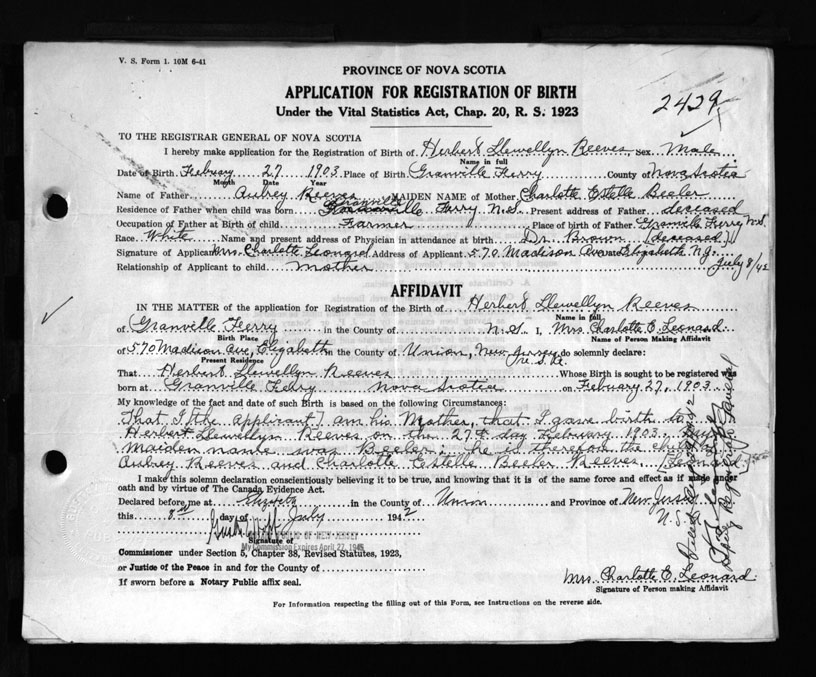 V. S. Form 1. 10M 6-41
PROVINCE OF NOVA SCOTIA
APPLICATION FOR REGISTRATION OF BIRTH
Under the Vital Statistics Act, Chap. 20, R. S. 1923
2429
TO THE REGISTRAR GENERAL OF NOVA SCOTIA
I hereby make application for the Registration of Birth of Herbert Llewellyn Reeves, Sex Male
Name in full
Date of Birth Febuary 27 1903 Place of Birth Granville Ferry County of Nova Scotia
Month Date Year
Name of Father Aubrey Reeves MAIDEN NAME of Mother Charlotte Estelle Beeler
Residence of Father when child was born Granville Ferry N.S. Present address of Father deceased
Occupation of Father at Birth of child Farmer Place of birth of Father Granville Ferry N.S.
Race White Name and present address of Physician in attendance at birth Dr Brown (deceased)
Signature of Applicant Mrs. Charlotte Leonard Address of Applicant 570 Madison Ave Elizabeth N.J.
Relationship of Applicant to child mother July 8/42
AFFIDAVIT
IN THE MATTER of the application for Registration of the Birth of Herbert Llewellyn Reeves
Name in full
of Granville Ferry in the County of N.S. I, Mrs. Charlotte E. Leonard
Birth Place Name of Person Making Affidavit
of 570 Madison Ave, Elizabeth in the County of Union, New Jersey do solemnly declare:
Present Residence
That Herbert Llewellyn Reeves Whose Birth is sought to be registered was
born at Granville Ferry Nova Scotia on Febuary 27, 1903
My knowledge of the fact and date of such Birth is based on the following Circumstances:
That I (the applicant) am his Mother, that I gave birth to
Herbert Llewellyn Reeves on the 27th day Febuary 1903,
Maiden name was Beeler; the child
Aubrey Reeves and Charlotte Estelle Beeler Reeves (Leonard)
I make this solemn declaration conscientiously believing it to be true, and knowing that it is of the same force and effect as if made under
oath and by virtue of The Canada Evidence Act.
Declared before me at Elizabeth in the County of Union and Province of New Jersey
this 8th day of July 1942 U.S.
Signature of
My Commission Expires April 27, 1945
Commissioner under Section 5, Chapter 38, Revised Statutes, 1923,
or Justice of the Peace in and for the County of
If sworn before a Notary Public affix seal.
Mrs. Charlotte E. Leonard
Signature of Person making Affidavit
For Information respecting the filling out of this Form, see Instructions on the reverse side.